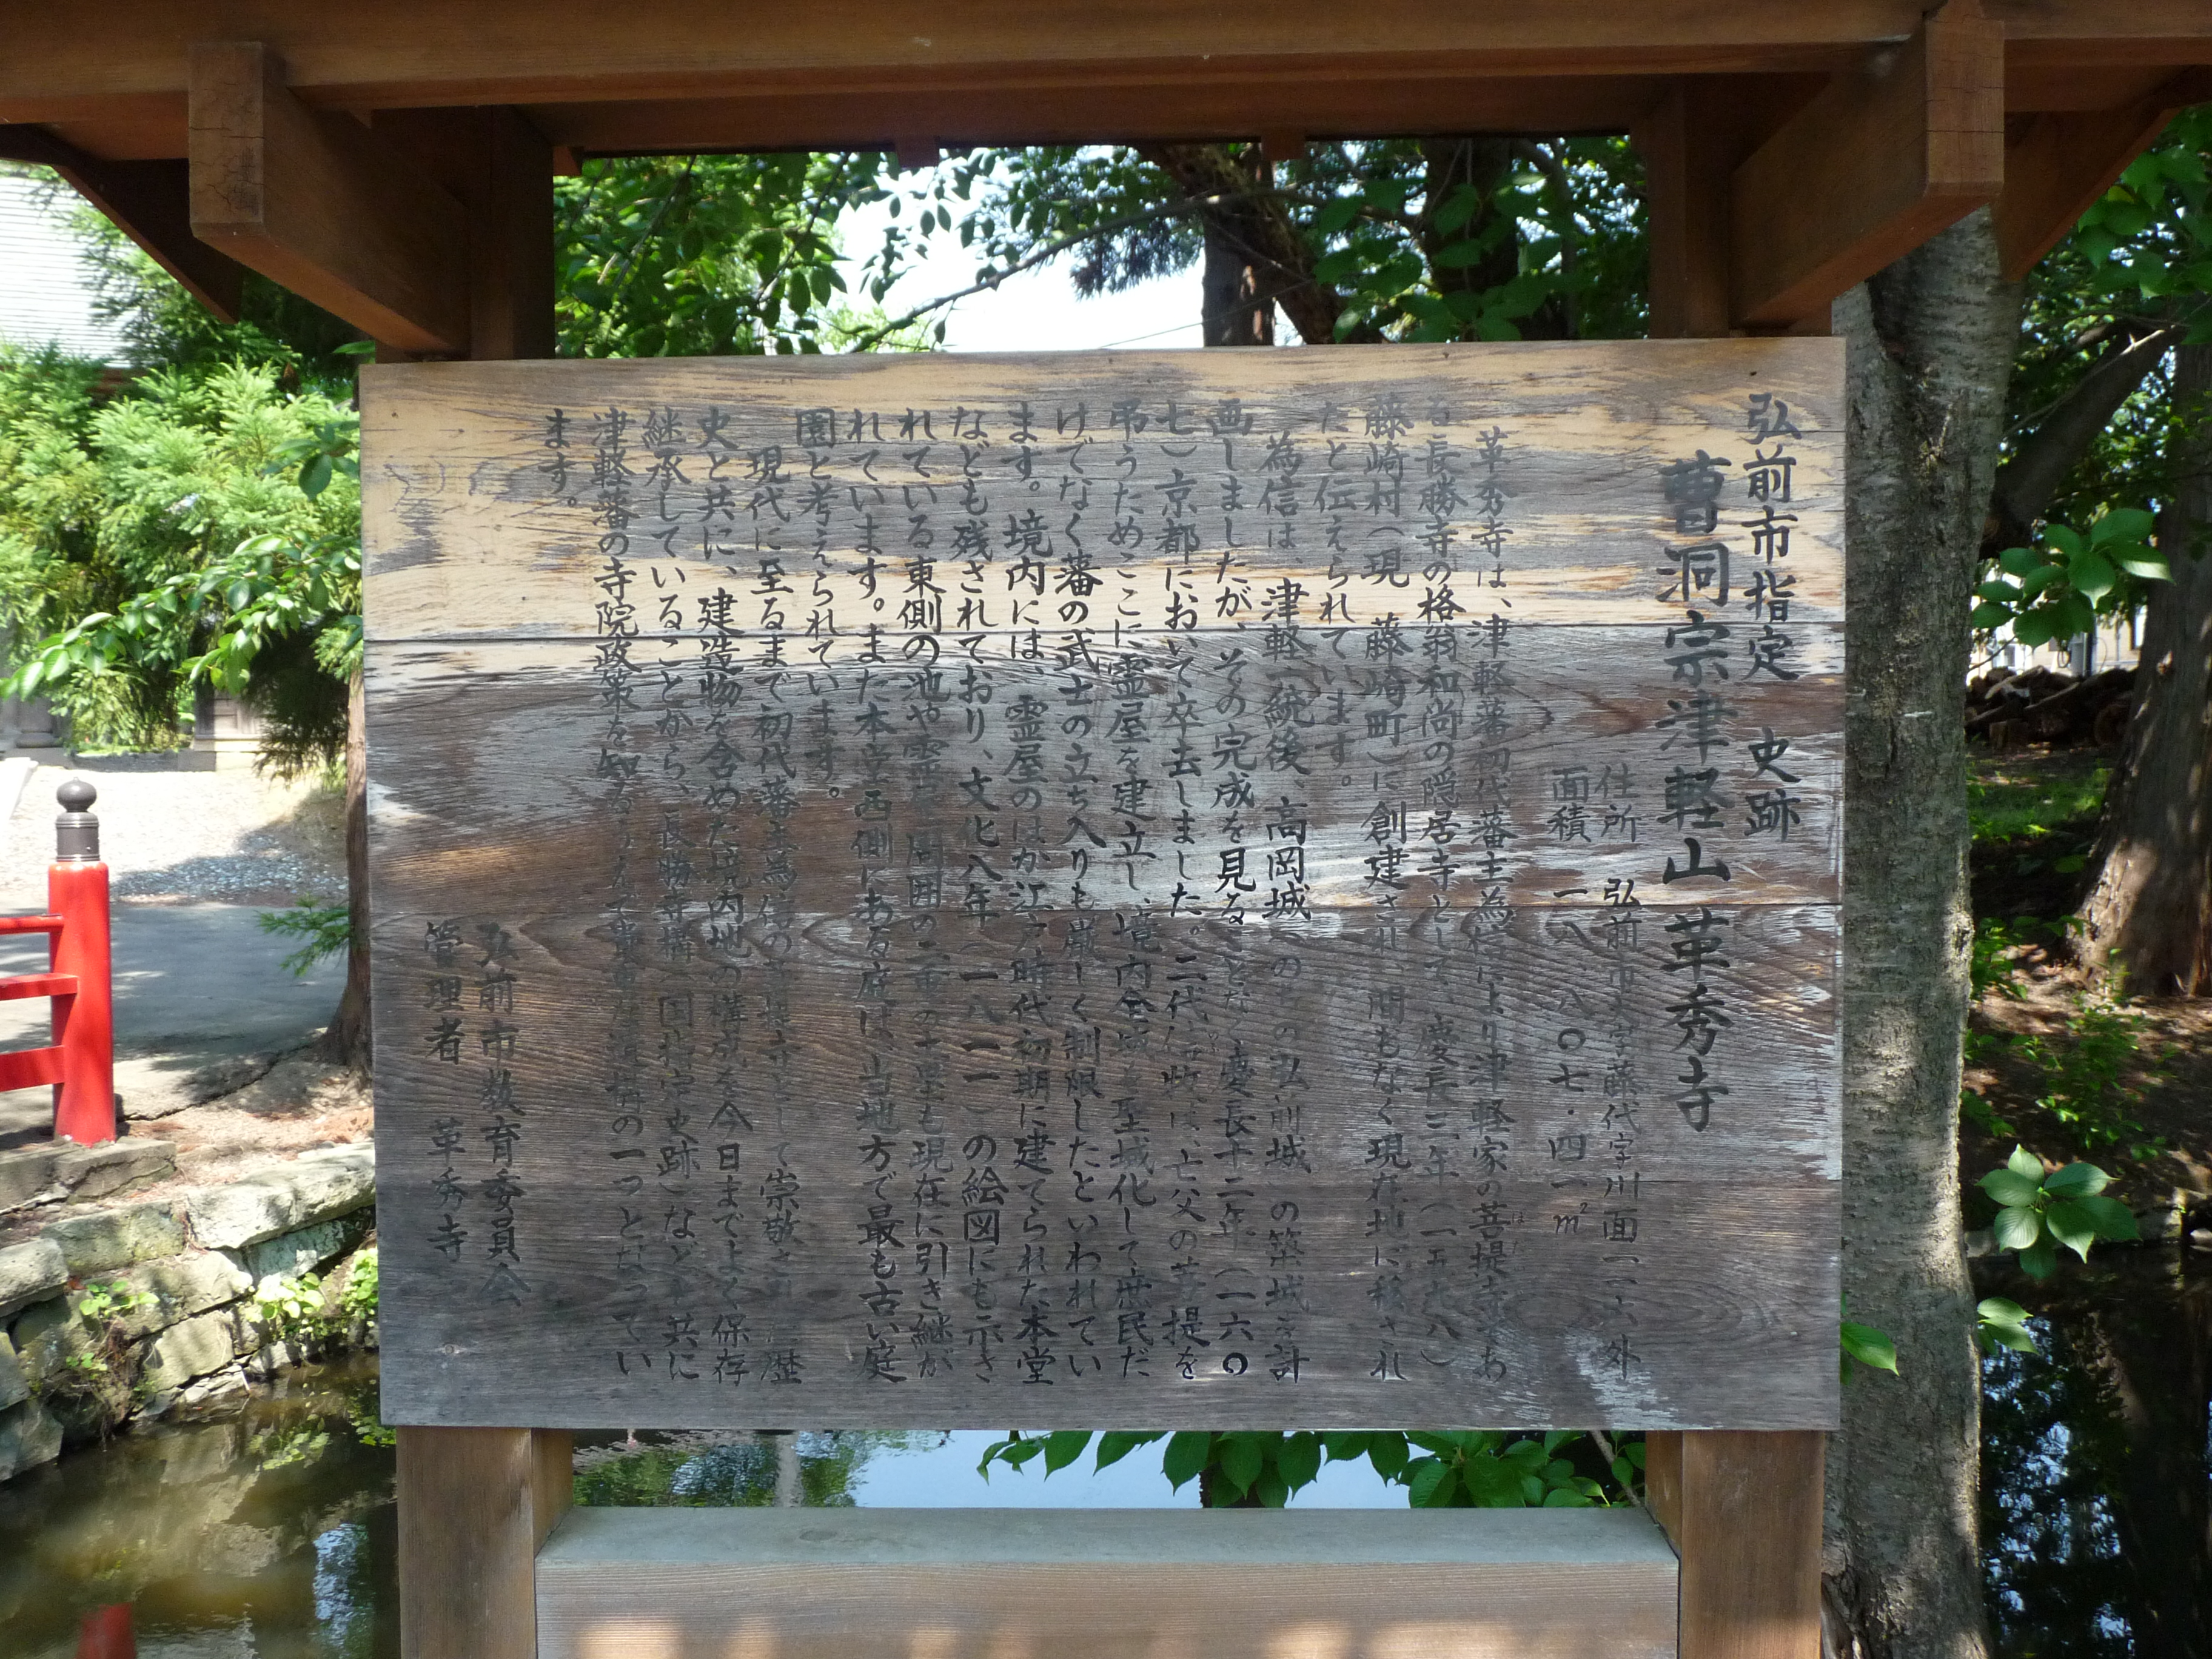 弘前市指定　史跡
曹洞宗津軽山革秀寺
住所　弘前市大字藤代字川面一一六外
面積　一八、八〇七・四一㎡
革秀寺は、津軽藩初代藩主為信により津軽家の菩提寺であ
る長勝寺の格翁和尚の隠居寺として、慶長三年（一五九八）
藤崎村（現　藤崎町）に創建され、間もなく現在地に移され
たと伝えられています。
為信は、津軽一統後、高岡城（のちの弘前城）の築城を計
画しましたが、その完成を見ることなく慶長十二年（一六〇
七）京都において卒去しました。二代信牧は、亡父の菩提を
弔うためここに霊屋を建立し、境内全域を聖域化して庶民だ
けでなく藩の武士の立ち入りも厳しく制限したといわれてい
ます。境内には、霊屋のほか江戸時代初期に建てられた本堂
なども残されており、文化八年（一八一一）の絵図にも示さ
れている東側の池や霊屋周囲の二重の土塁も現在に引き継が
れています。また本堂西側にある庭は、当地方で最も古い庭
園と考えられています。
現代に至るまで初代藩主為信の菩提寺として崇敬され、歴
史と共に、建造物を含めた境内地の構成を今日までよく保存
継承していることから、長勝寺構（国指定史跡）などと共に
津軽藩の寺院政策を知るうえで貴重な遺構の一つとなってい
ます。
弘前市教育委員会
管理者　革秀寺